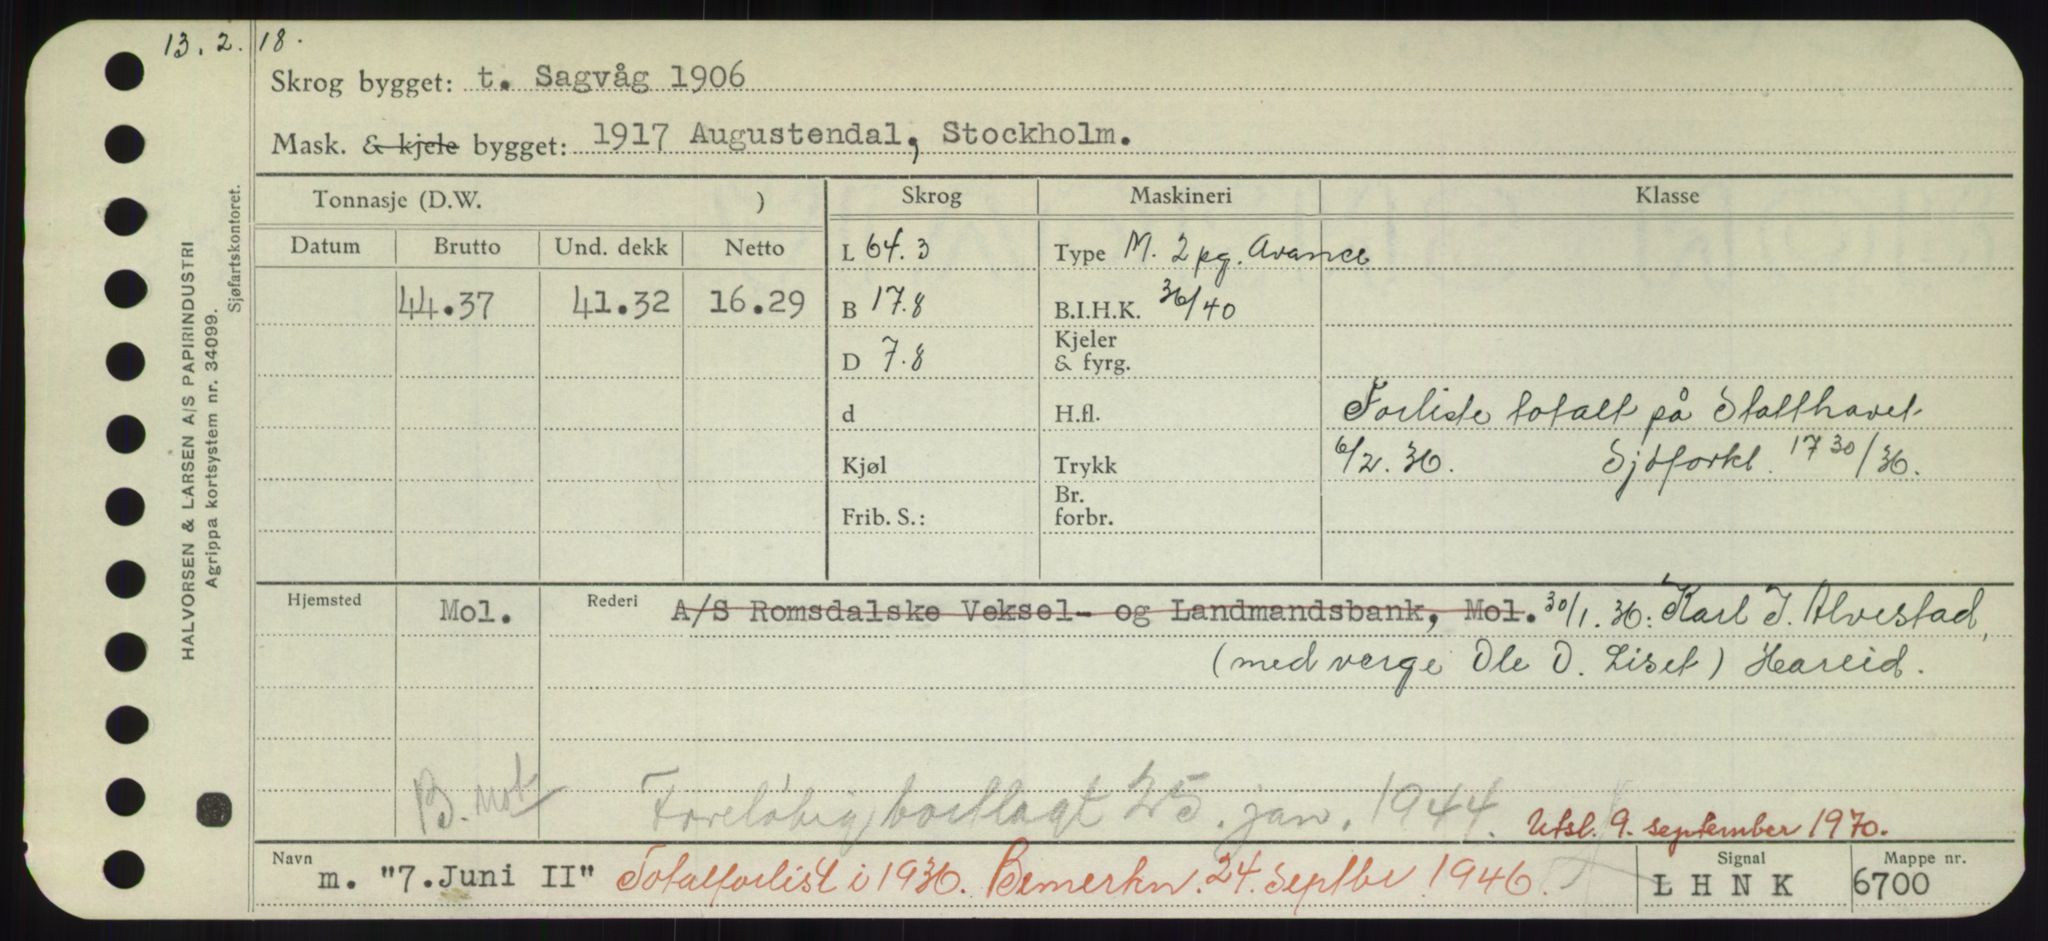 13.2.18.
Skrog bygget: t. Sagvåg 1906
Mask. & kjele bygget: 1917 Augustendal, Stockholm.
HALVORSEN & LARSEN A/S PAPIRINDUSTRI
Agrippa kortsystem nr. 34099.
Sjøfartskontoret.
Tonnasje (D.W. ) Skrog Maskineri Klasse
Datum Brutto Und. dekk Netto L 64.3 Type M. 2 pg. Avance
44.37 41.32 16.29 B 17.8 B.I.H.K. 36/40
D 7.8 Kjeler & fyrg.
d H.fl. Forliste totalt på Statthavet
Kjøl Trykk 6/2.36. Sjøforkl. 17 30/36.
Frib. S.: Br. forbr.
Hjemsted Mol. Rederi A/S Romsdalske Veksel- og Landmandsbank, Mol. 30/1.36: Karl J. Alvestad,
(med verge Ole O. Liset) Hareid.
B. not Foreløbig bortlagt 25. jan. 1944. Utsl. 9. september 1970.
Navn m. "7.Juni II" Totalforlist i 1936. Bemerkn. 24. septbr 1946. Signal L H N K Mappe nr. 6700